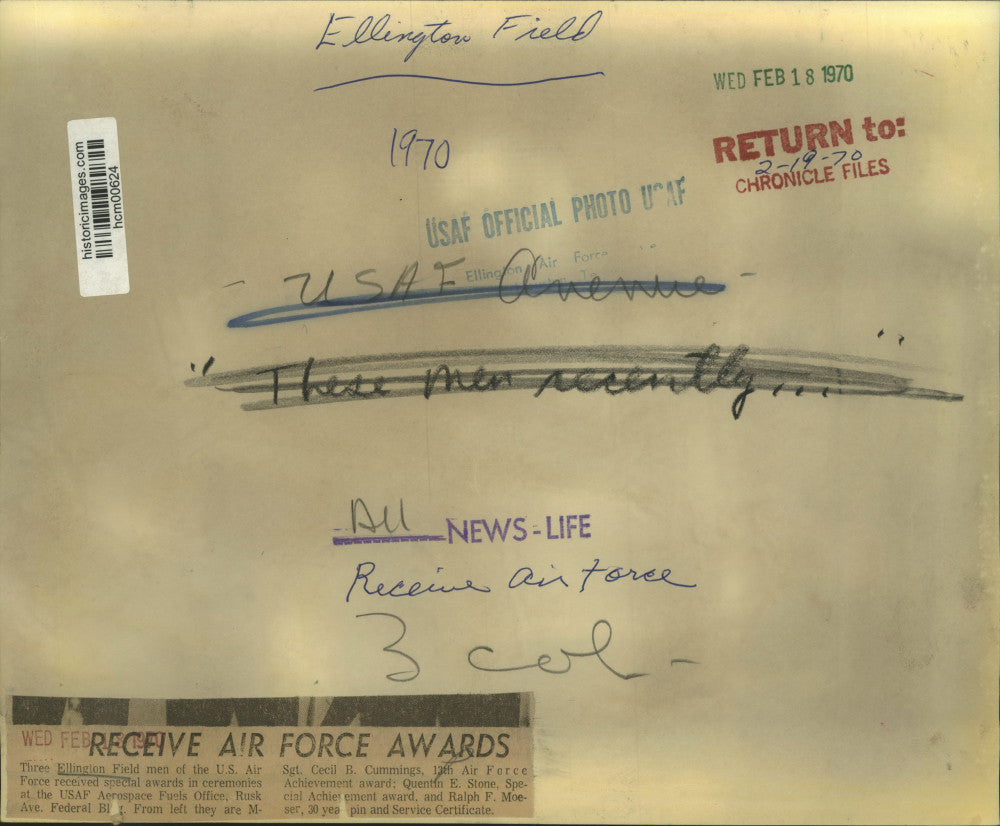 Ellington Field
WED FEB 18 1970
1970
RETURN to:
2-19-70
CHRONICLE FILES
historicimages.com
hcm00624
USAF OFFICIAL PHOTO USAF
Ellington Air Force
- USAF Avenue -
"These men recently..."
All NEWS-LIFE
Receive Air Force
3 col-
WED FEB 1970
RECEIVE AIR FORCE AWARDS
Three Ellington Field men of the U.S. Air
Force received special awards in ceremonies
at the USAF Aerospace Fuels Office, Rusk
Ave. Federal Bldg. From left they are M-
Sgt. Cecil B. Cummings, 13th Air Force
Achievement award; Quentin E. Stone, Spe-
cial Achievement award, and Ralph F. Moe-
ser, 30 year pin and Service Certificate.